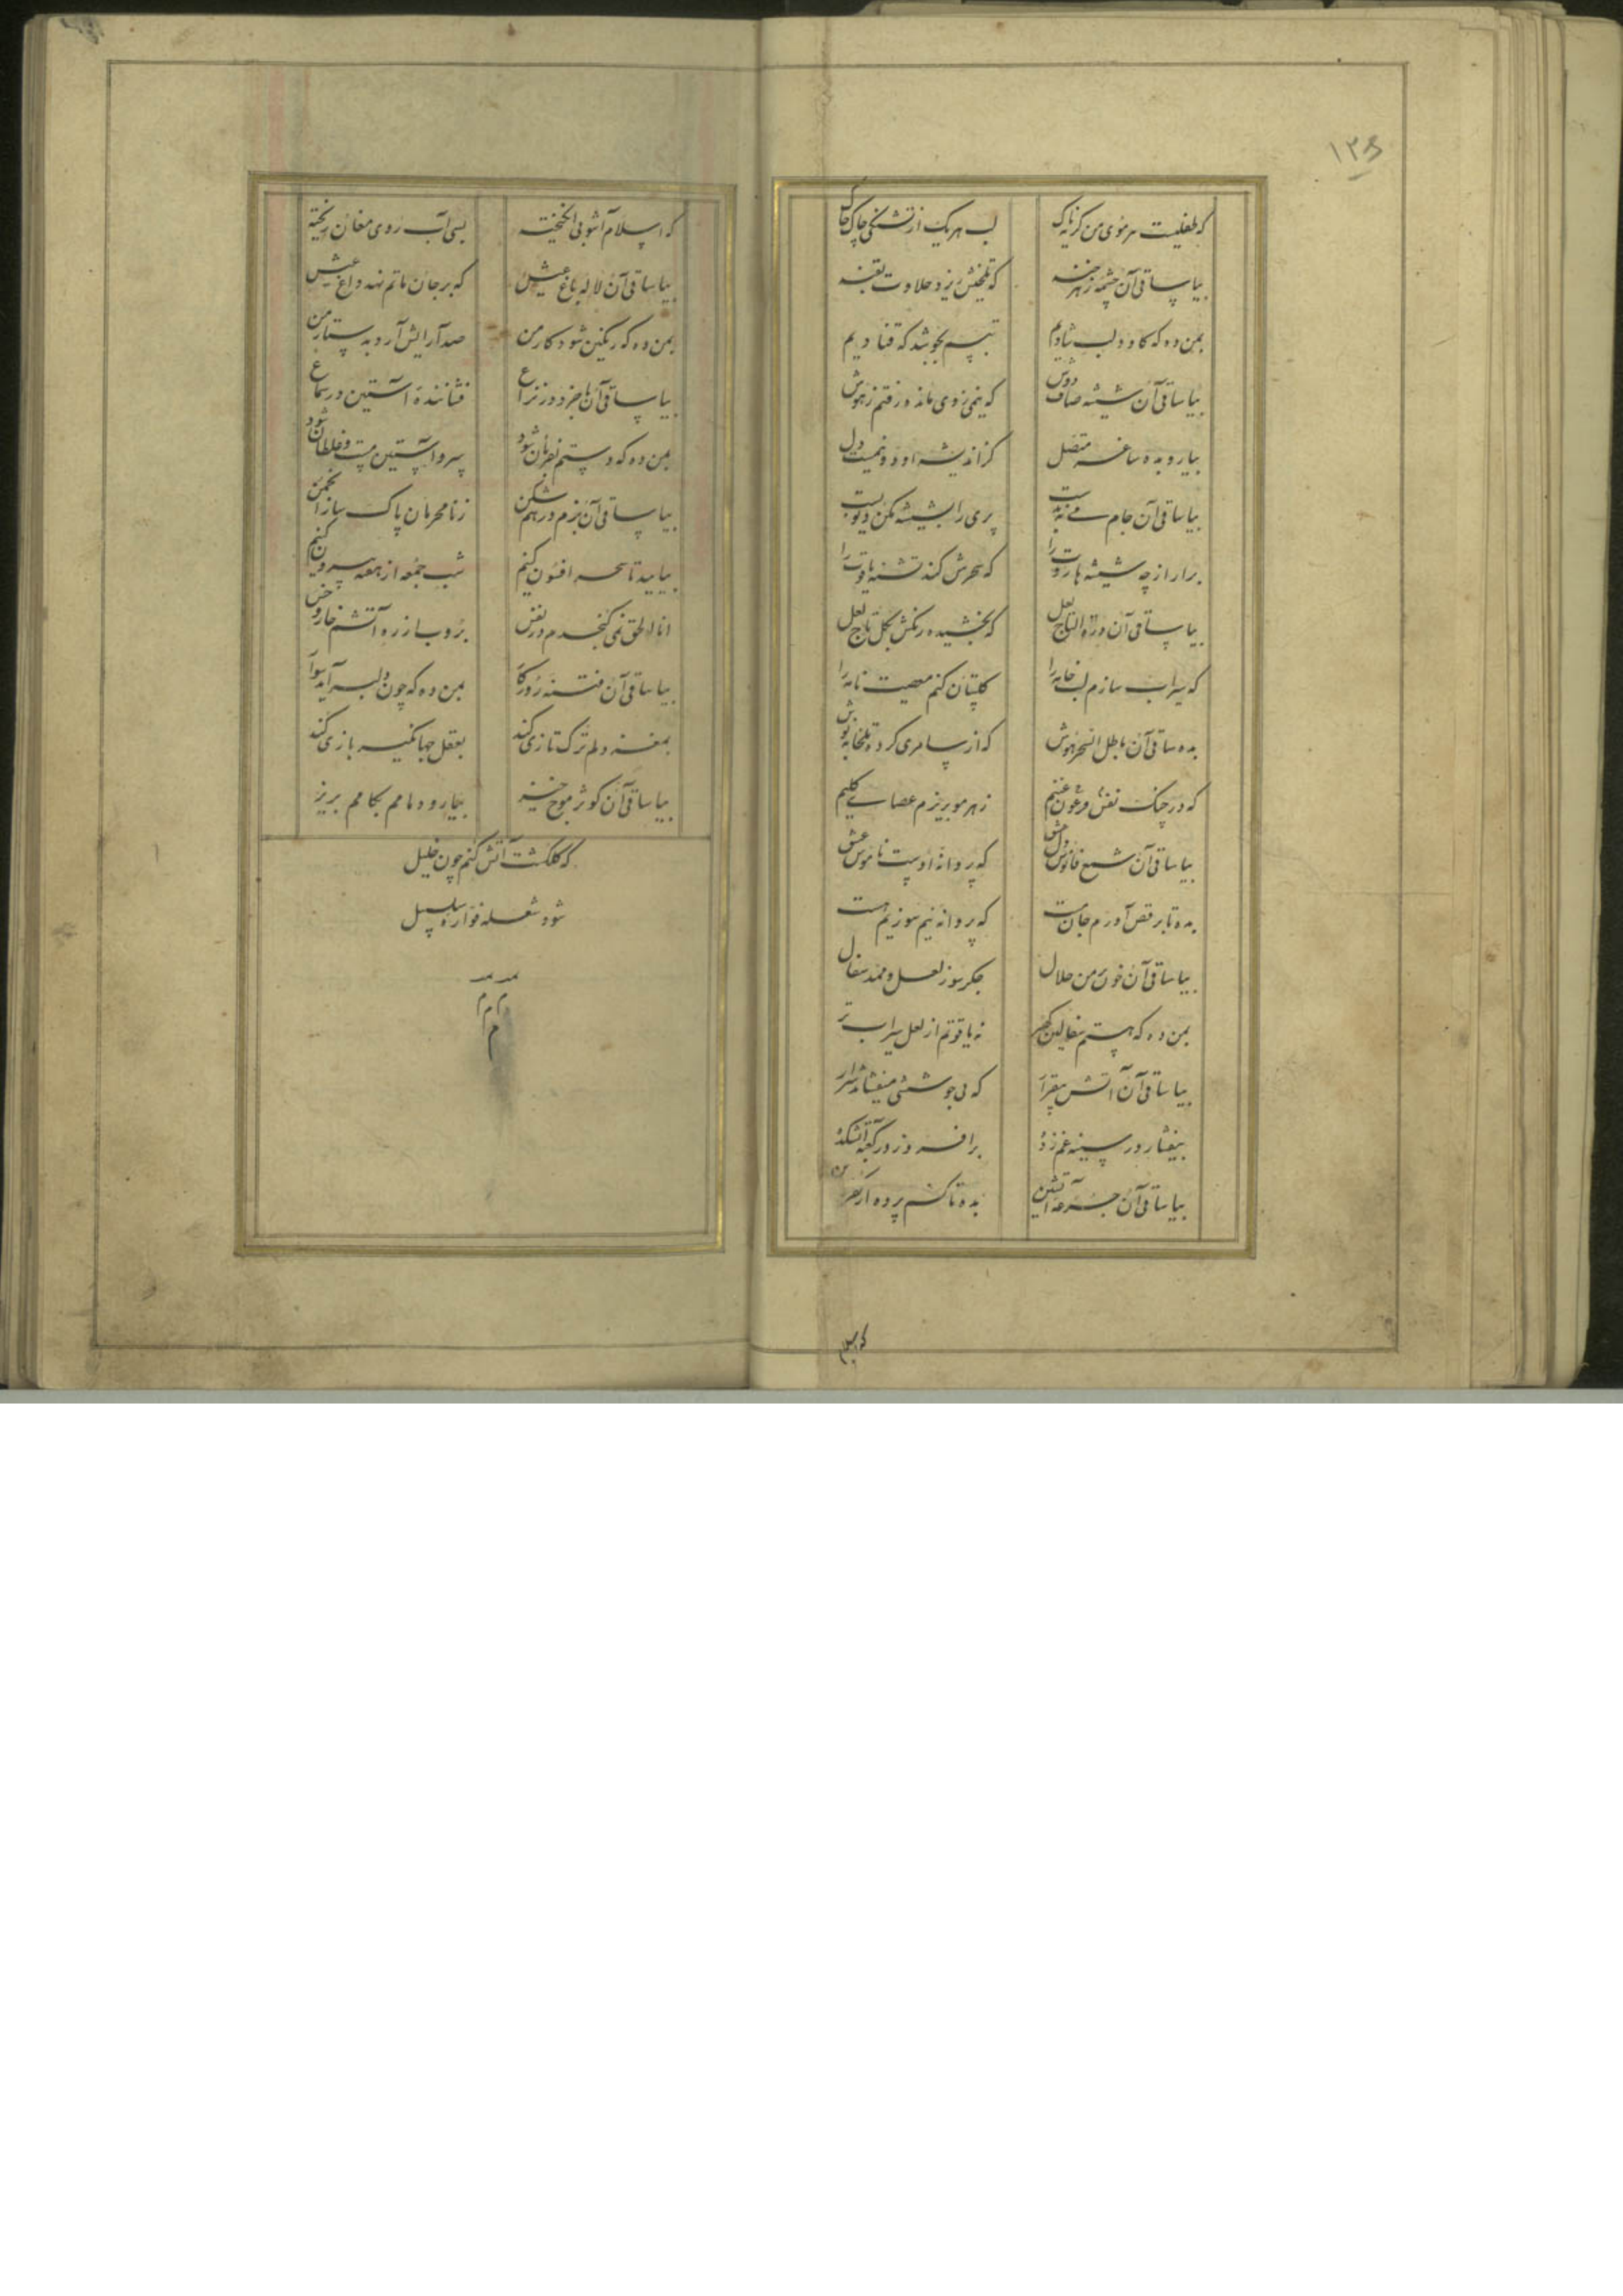 ۱۳۵
که طفلیست هر موی من گریه‌ناک
لب هر یک از تشنگی چاک چاک
بیا ساقی آن چشمهٔ زهرخند
که تلخیش زد حلاوت بقند
بمن ده که
تبسم بجوشد که قنادیم
بیا ساقی آن شیشه صاف دوش
که نیمی ز وی ماند و رفتم ز هوش
بیار و بده ساغر متصل
کز اندیشه او دو نیمست دل
بیا ساقی آن جام می به بدست
پری را بشیشه مکن دیوبست
برار از چه شیشه هاروت را
که سحرش کند تشنه یاقوت را
بیا ساقی آن درة التاج لعل
که بخشیده رنگش بگل تاج لعل
که سیراب سازم لب خامه را
گلستان کنم معصیت نامه را
بده ساقی آن باطل السحر هوش
که از سامری کرده تلخابه نوش
که در جنگ نفس فرعون غنیم
ز هر مو بریزم عصای کلیم
بیا ساقی آن شمع فانوس دل عشق
که پروانه اوست ناموس عشق
بده تا برقص آورم جان مست
که پروانه نیم سوزیم هست
بیا ساقی آن خون من حلال
جگرسوز لعل و ممد سفال
بمن ده که هستم سفالین گهر
نه یاقوتم از لعل سیراب تر
بیا ساقی آن آتش بیقرار
که بی جوششی میفشاند شرار
بیفشار در سینه غم زده
برافروز در کعبه آتشکده
بیا ساقی آن جرعه آتشین
بده تا کشم پرده از
که اسلام
که اسلام آشوبی انگیخته
بسی آب روی مغان ریخته
بیا ساقی آن لاله باغ عیش
که بر جان ماتم نهد داغ عیش
بمن ده که رنگین شود کار من
صد آرایش آرد به دستار من
بیا ساقی آن
فشاننده آستین در سماع
بمن ده که دستم بفرمان شود
سر و آستین مست و غلطان شود
بیا ساقی آن بزم درهم شکن
ز نامحرمان پاک ساز انجمن
بیایید تا سحر افسون کنیم
شب جمعه از هفته بیرون کنیم
انا الحق نمی گنجدم در نفس
بروب از ره آتشم خار و خس
بیا ساقی آن فتنه روزگار
بمن ده که چون دلبر آید سوار
بمغز دلم ترک تازی کند
بعقل جهانگیر بازی کند
بیا ساقی آن کوثر موج خیز
بیار و دمادم بکامم بریز
که گلگشت آتش کنم چون خلیل
شود شعله فواره سلسبیل
م م م
م